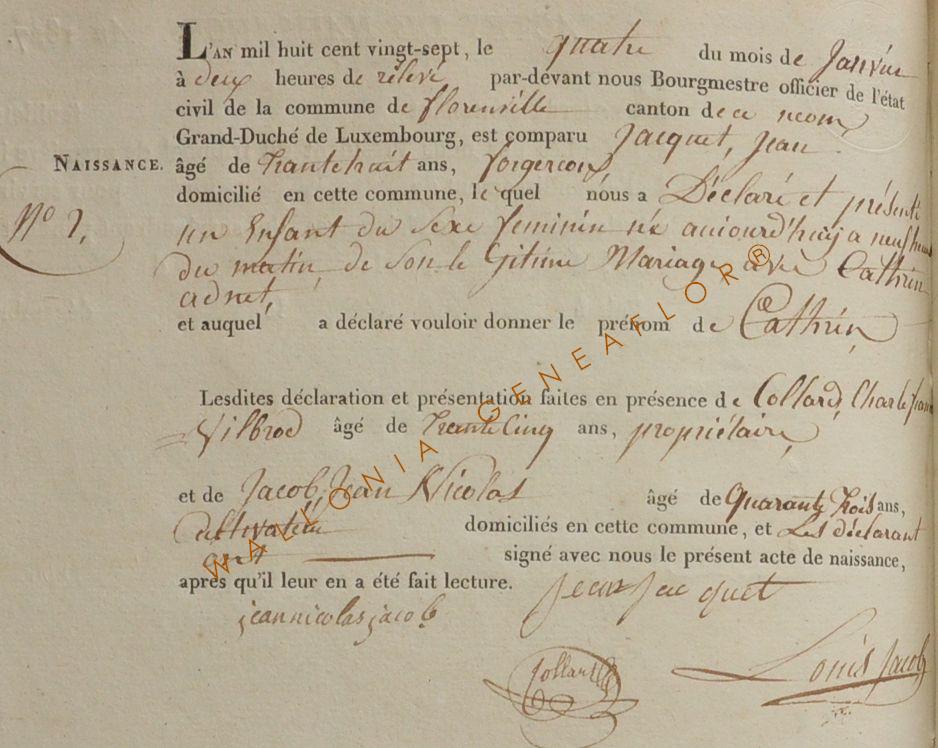 L'AN mil huit cent vingt-sept, le quatre du mois de Janvier
à deux heures de relevé par-devant nous Bourgmestre officier de l'état
civil de la commune de florenville canton de ce nom
Grand-Duché de Luxembourg, est comparu Jacquet, Jean
NAISSANCE. âgé de trante huit ans, forgeron
domicilié en cette commune, le quel nous a Déclaré et présenté
N° 2,
un Enfant du Sexe feminin né aujourd'huy a neuf heures
du matin, de Son le Gitime Mariage avec Cathrin
adnet,
et auquel a déclaré vouloir donner le prénom de Cathrin
Lesdites déclaration et présentation faites en présence de Collard, Charle
Vilbrod âgé de trante Cinq ans, propriétaire
et de Jacob, Jean Nicolas âgé de quarante trois ans,
Cultivateur domiciliés en cette commune, et Les déclarant
signé avec nous le présent acte de naissance,
après qu'il leur en a été fait lecture.
jean jacquet
jeannicolas jacob
Collard
Louis Jacob
WALLONIA GENEAFLOR ®